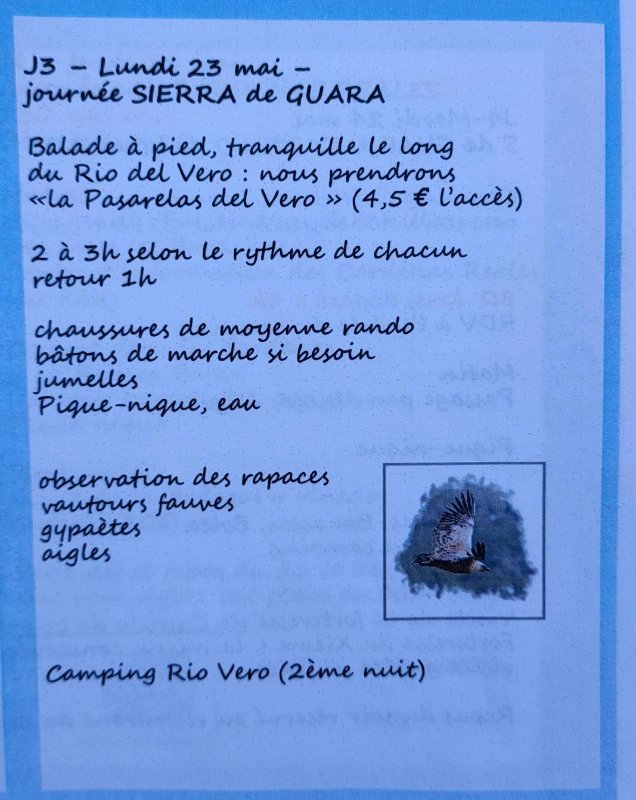 J3 – Lundi 23 mai –
journée SIERRA de GUARA
Balade à pied, tranquille le long
du Rio del Vero : nous prendrons
«la Pasarelas del Vero » (4,5 € l'accès)
2 à 3h selon le rythme de chacun
retour 1h
chaussures de moyenne rando
bâtons de marche si besoin
jumelles
Pique-nique, eau
observation des rapaces
vautours fauves
gypaètes
aigles
Camping Rio Vero (2ème nuit)